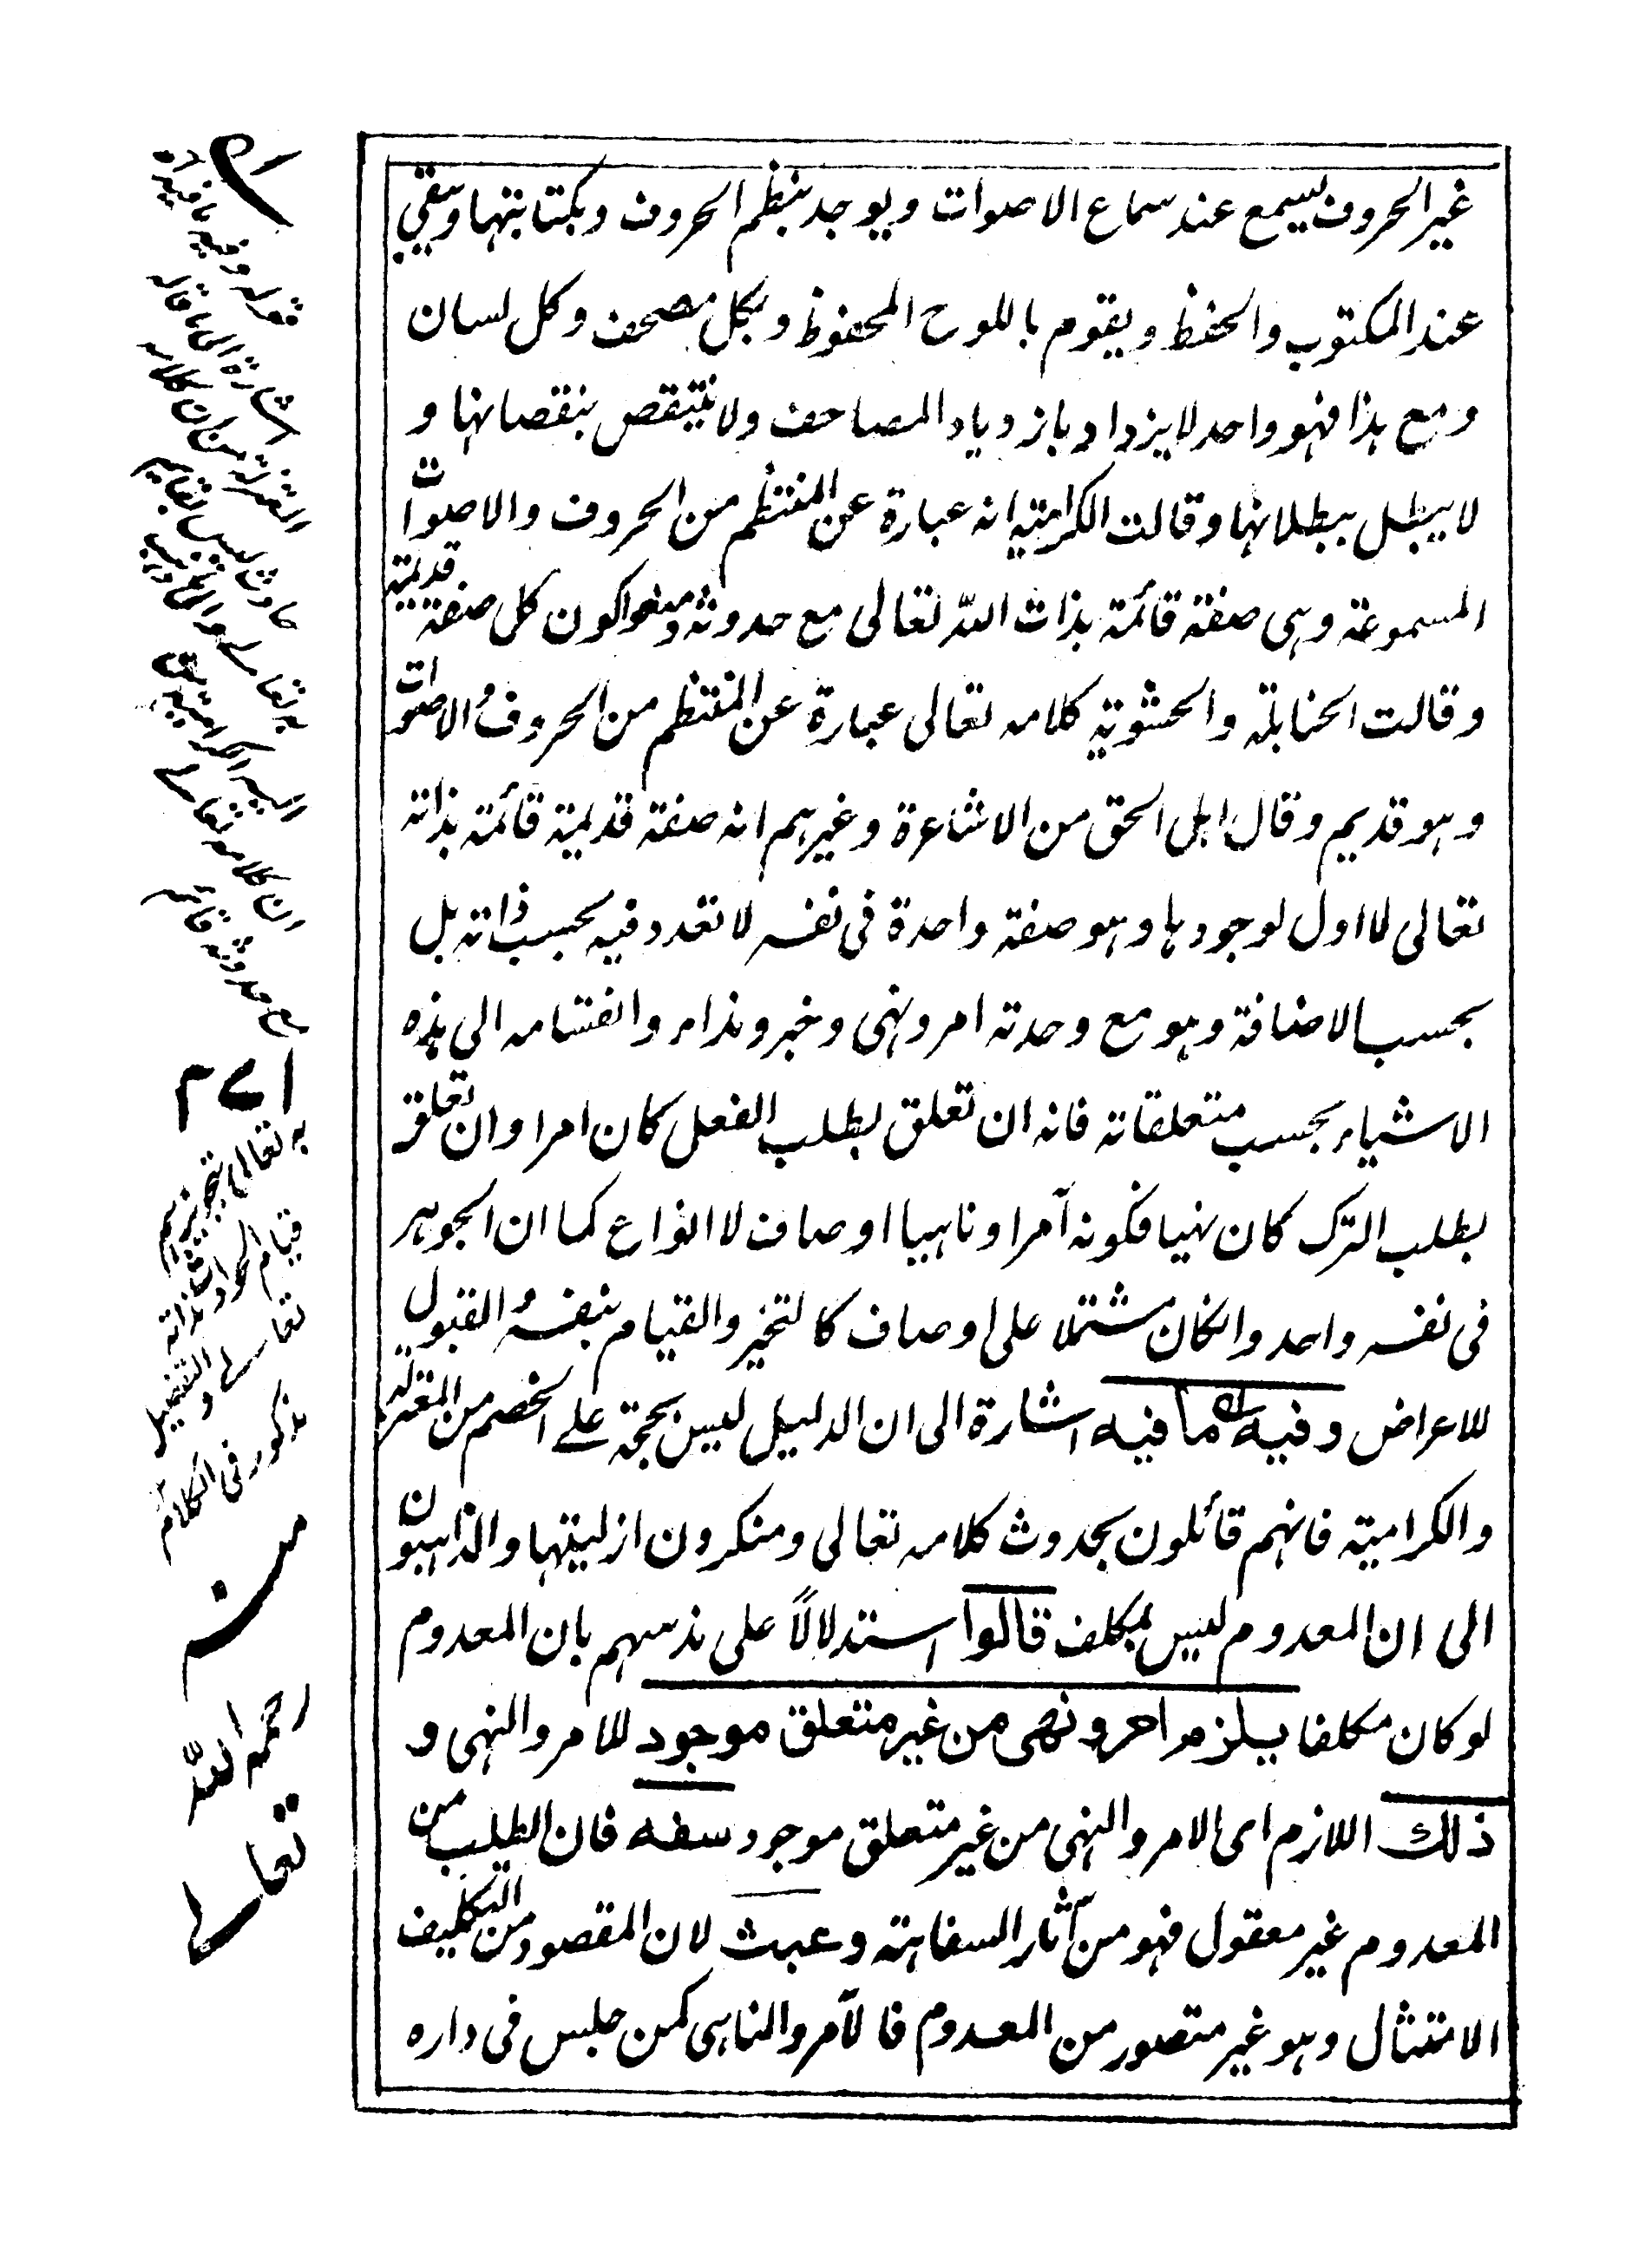 غير الحروف يسمع عند سماع الاصوات ويوجد بنظم الحروف وبكتابتها ويبقى
عند المكتوب والحفظ ويقوم باللوح المحفوظ وبكل مصحف وكل لسان
ومع هذا فهو واحد لا يزداد بازدياد المصاحف ولا ينتقص بنقصانها و
لا يبطل ببطلانها وقالت الكرامية انه عبارة عن المنتظم من الحروف والاصوات
المسموعة وهى صفة قائمة بذات الله تعالى مع حدوثه ومنعوا كون كل صفة قديمة
وقالت الحنابلة والحشوية كلامه تعالى عبارة عن المنتظم من الحروف والاصوات
وهو قديم وقال اهل الحق من الاشاعرة وغيرهم انه صفة قديمة قائمة بذاته
تعالى لا اول لوجودها وهو صفة واحدة فى نفسه لا تعدد فيه بحسب ذاته بل
بحسب الاضافة وهو مع وحدته امر ونهى وخبر ونداء وانقسامه الى هذه
الاشياء بحسب متعلقاته فانه ان تعلق بطلب الفعل كان امرا وان تعلق
بطلب الترك كان نهيا فكونه آمرا وناهيا اوصاف لا انواع كما ان الجوهر
فى نفسه واحد وانكان مشتملا على اوصاف كالتحيز والقيام بنفسه والقبول
للاعراض وفيه ما فيه اشارة الى ان الدليل ليس بحجة على الخصم من المعتزلة
والكرامية فانهم قائلون بحدوث كلامه تعالى ومنكرون ازليتها والذاهبون
الى ان المعدوم ليس بمكلف قالوا استدلالاً على مذهبهم بان المعدوم
لو كان مكلفا يلزم امر ونهى من غير متعلق موجود للامر والنهى و
ذلك اللازم اى الامر والنهى من غير متعلق موجود سفه فان الطلب من
المعدوم غير معقول فهو من آثار السفاهة وعبث لان المقصود من التكليف
الامتثال وهو غير متصور من المعدوم فالآمر والناهى كمن جلس فى داره
قوله وفيه ما فيه
اشارة الى ما قاله
المعتزلة من ان كلامه
حادث ليس بقائم
به تعالى والى ما ذهب
اليه الكرامية من
ان كلامه تعالى
مع حدوثه قائم
به تعالى لتجويزهم
قيام الحوادث بذاته
تعالى والتفصيل
مذكور فى الكلام
منه
رحمه الله
تعالى